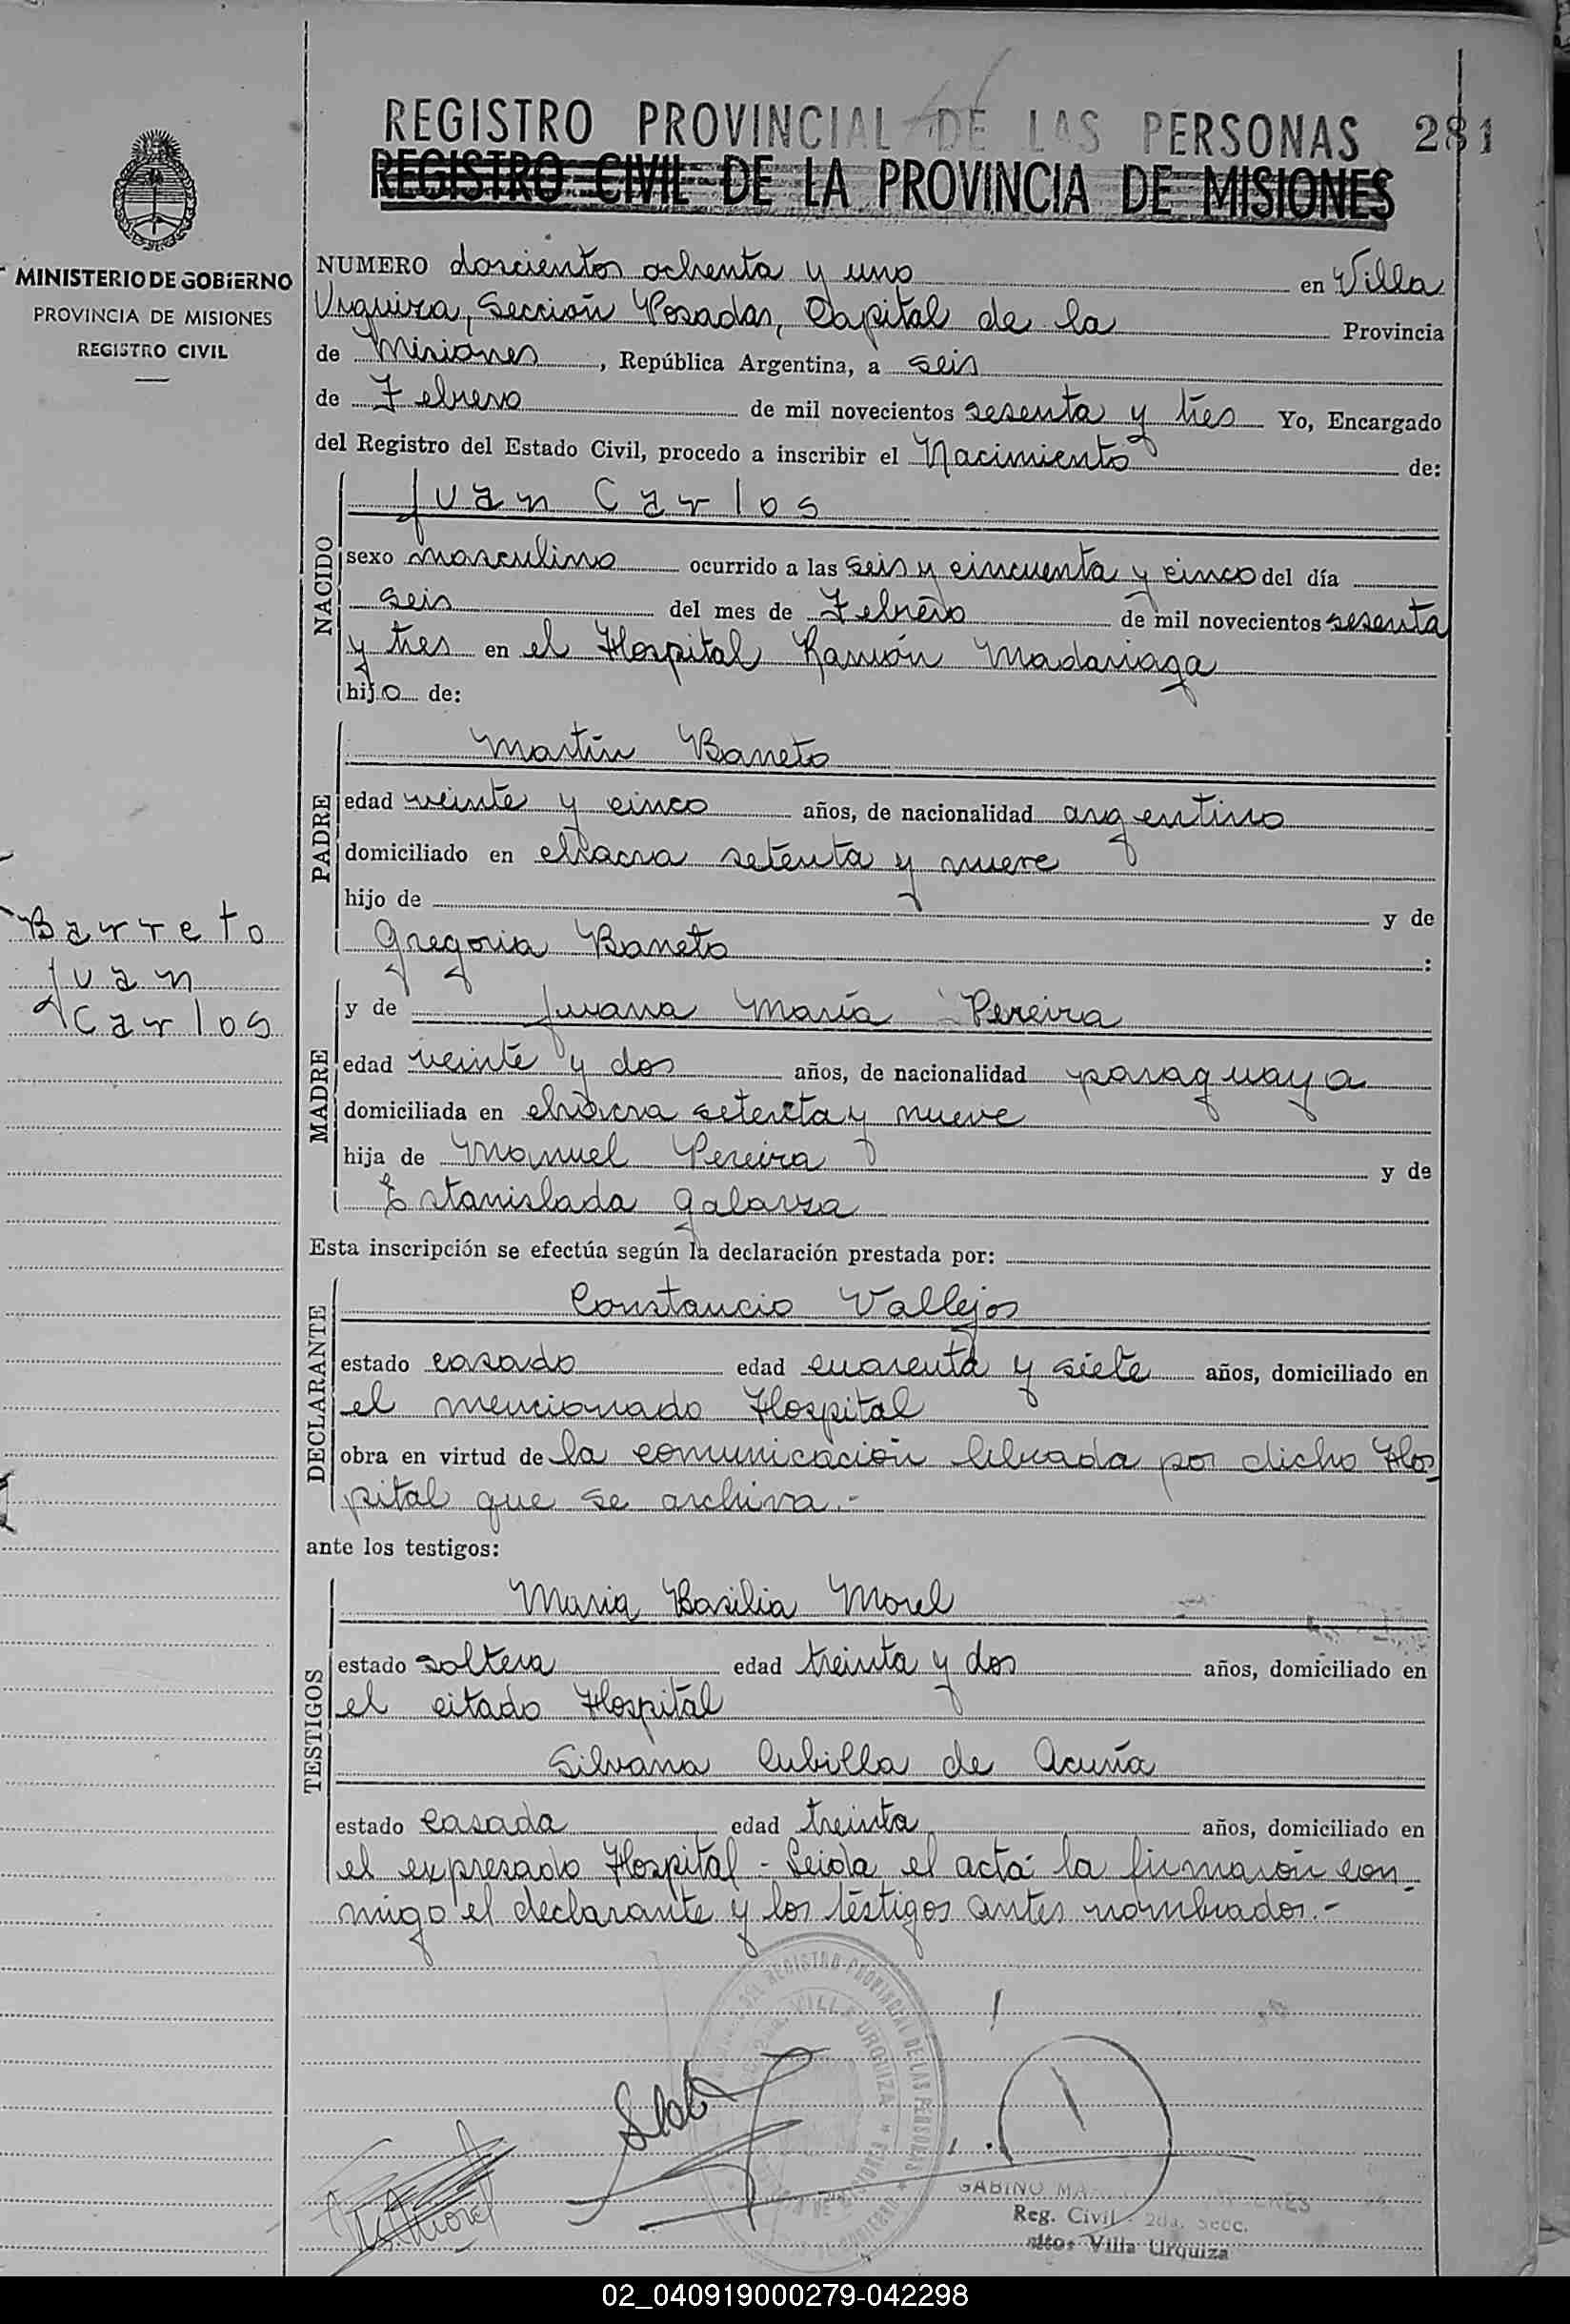 REGISTRO PROVINCIAL DE LAS PERSONAS 281
REGISTRO CIVIL DE LA PROVINCIA DE MISIONES
MINISTERIO DE GOBIERNO
PROVINCIA DE MISIONES
REGISTRO CIVIL
NUMERO doscientos ochenta y uno en Villa
Urquiza, Sección Posadas, Capital de la Provincia
de Misiones, República Argentina, a seis
de Febrero de mil novecientos sesenta y tres Yo, Encargado
del Registro del Estado Civil, procedo a inscribir el Nacimiento de:
NACIDO
Juan Carlos
sexo masculino ocurrido a las seis y cincuenta y cinco del día
seis del mes de Febrero de mil novecientos sesenta
y tres en el Hospital Ramón Madariaga
hijo de:
PADRE
Martín Barreto
edad veinte y cinco años, de nacionalidad argentino
domiciliado en chacra setenta y nueve
hijo de y de
Gregoria Barreto :
Barreto
Juan
Carlos
MADRE
y de Juana María Pereira
edad veinte y dos años, de nacionalidad paraguaya
domiciliada en chacra setenta y nueve
hija de Manuel Pereira y de
Estanislada Galarza
Esta inscripción se efectúa según la declaración prestada por:
DECLARANTE
Constancio Vallejos
estado casado edad cuarenta y siete años, domiciliado en
el mencionado Hospital
obra en virtud de la comunicación librada por dicho Hos-
pital que se archiva.-
ante los testigos:
TESTIGOS
Maria Basilia Morel
estado soltera edad treinta y dos años, domiciliado en
el citado Hospital
Silvana Cubilla de Acuña
estado casada edad treinta años, domiciliado en
el expresado Hospital - Leida el acta la firmaron con-
migo el declarante y los testigos antes nombrados.-
REGISTRO PROVINCIAL DE LAS PERSONAS
VILLA URQUIZA
Morel
GABINO
Reg. Civil 2da. Secc.
Villa Urquiza
02_040919000279-042298